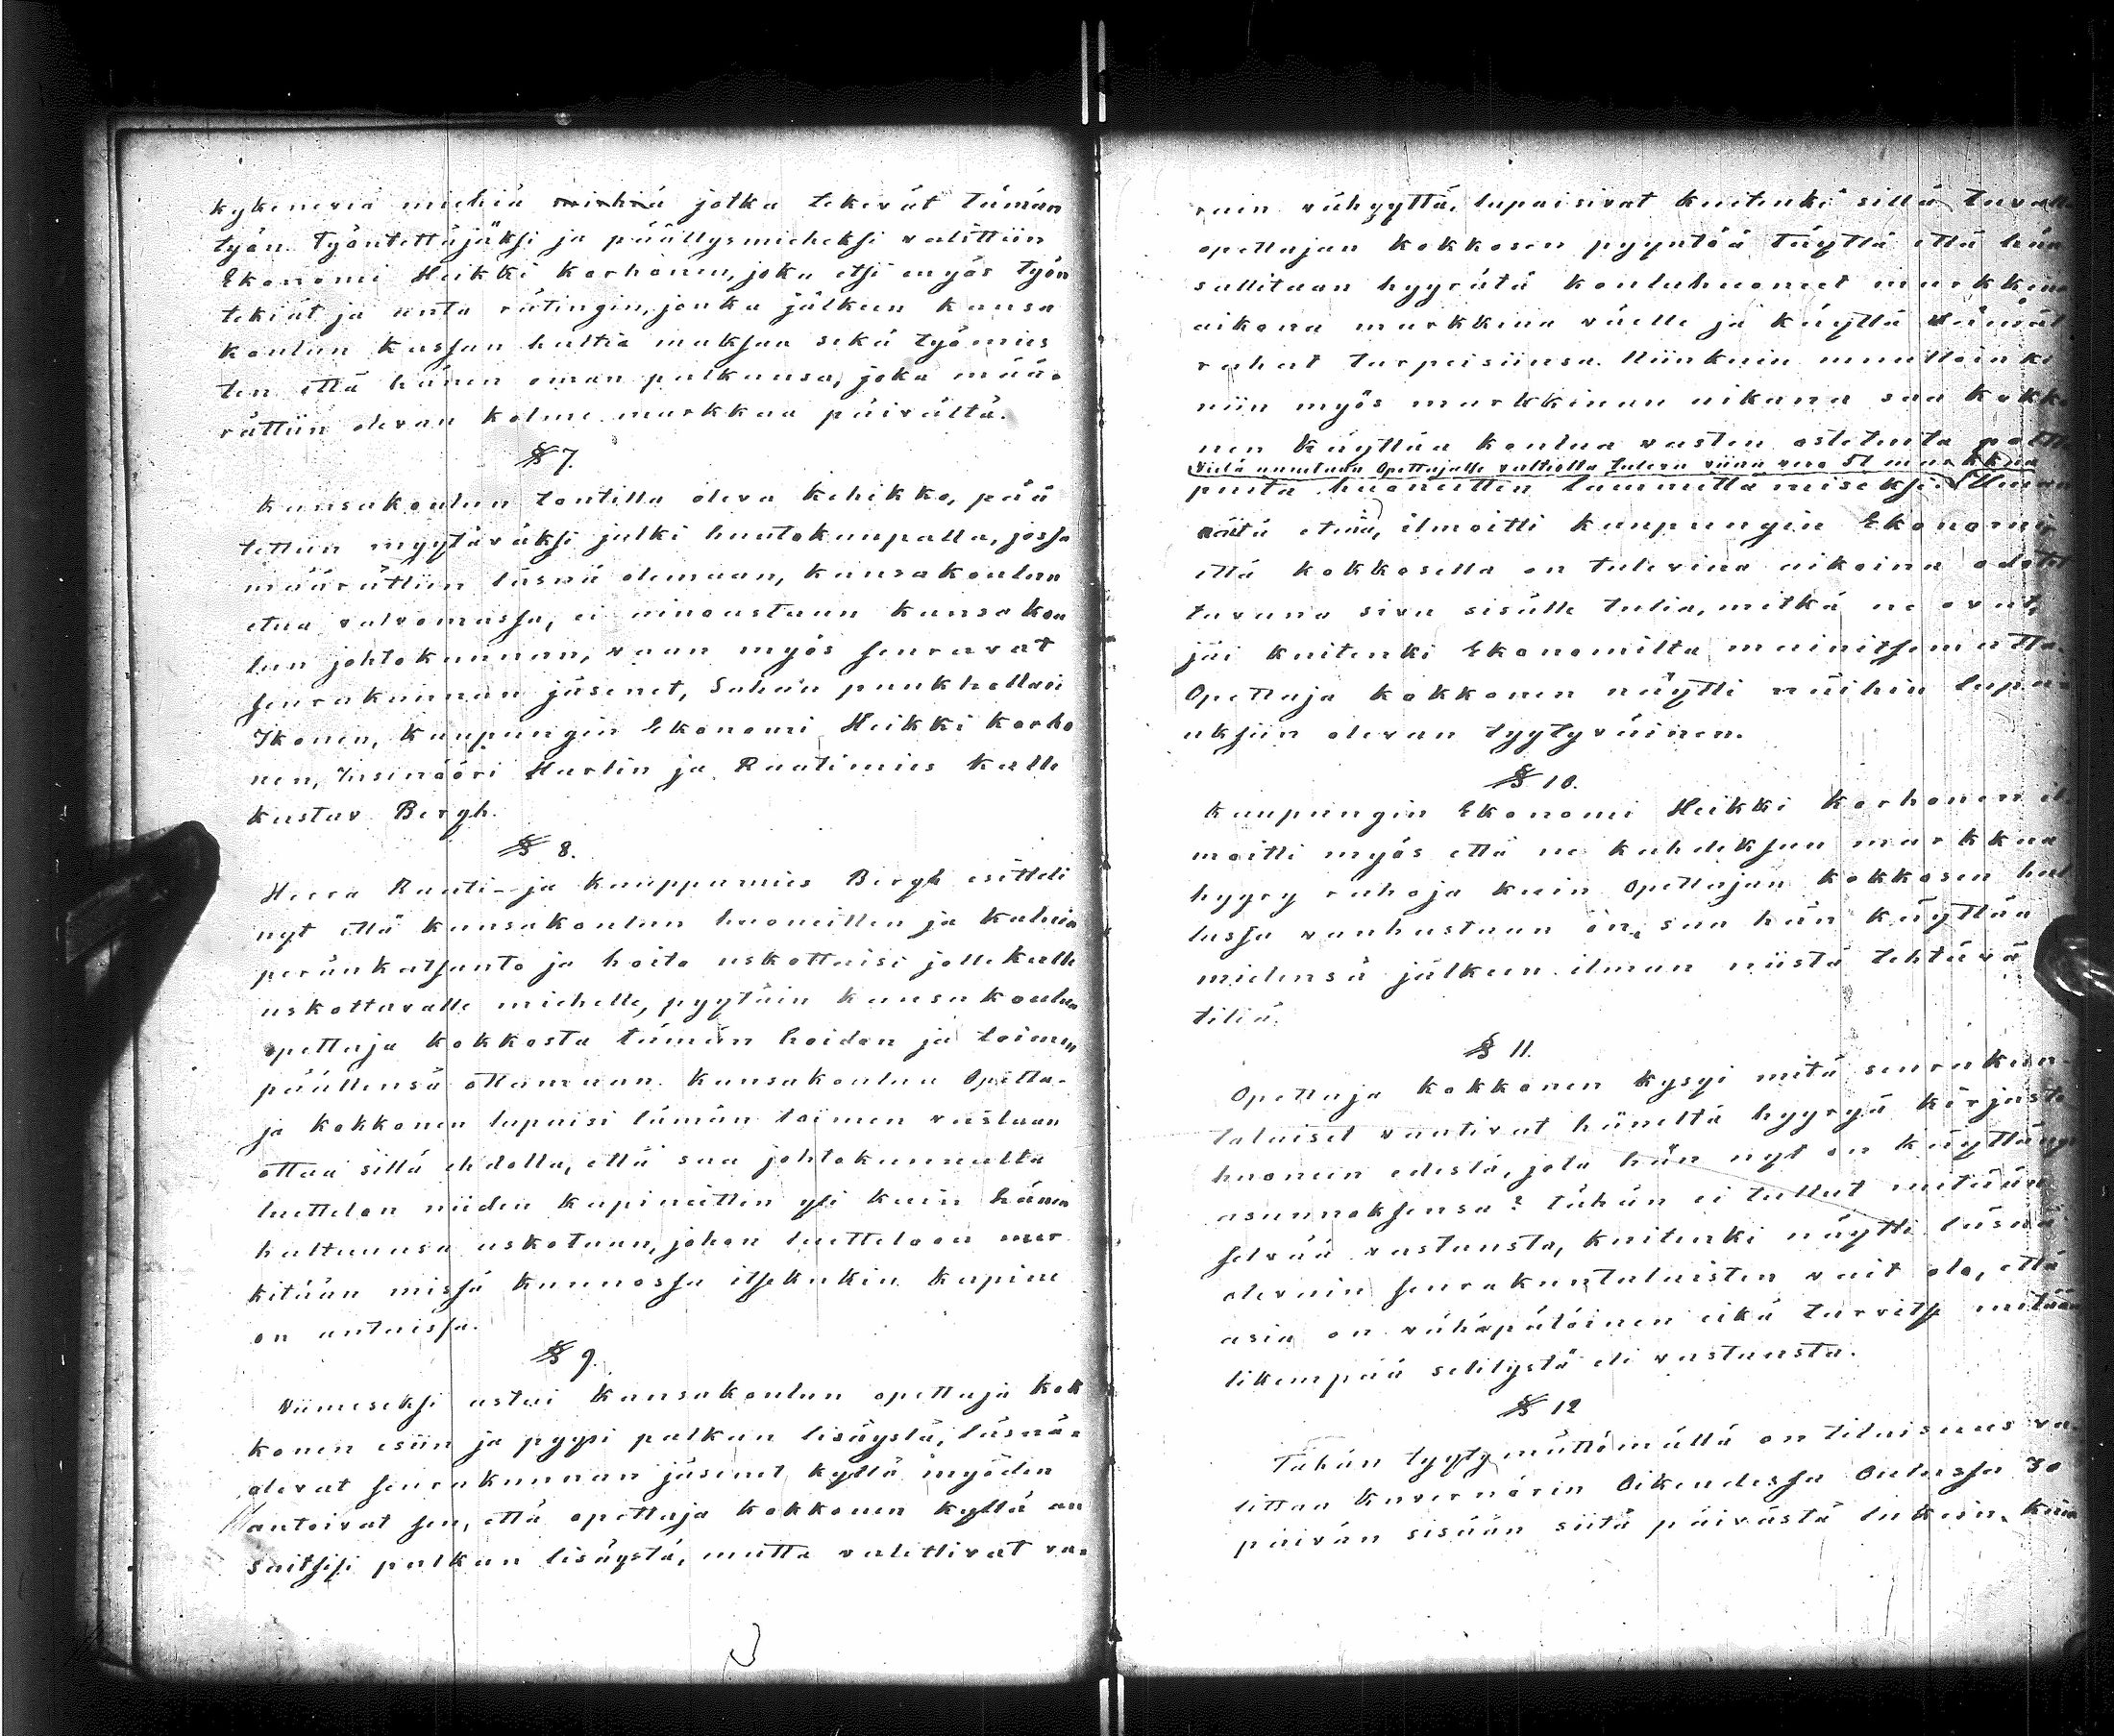 kykeneviä miehiä miehiä jotka tekevät tämän
työn. Työntettäjäksi ja päällysmieheksi valittiin
Ekonomi Heikki Korhonen, joka etsi myös työn
tekiät ja anta rätingin, jonka jälkeen kansa
koulun kassan haltia maksaa sekä työmies
ten että hänen oman palkansa, joka mää-
rättiin olevan kolme markkaa päivältä.
§ 7.
Kansakoulun tontilla oleva kehikko, pää
tettiin myytäväksi julki huutokaupalla, jossa
määrättiin läsnä olemaan, kansakoulun
etua valvomassa, ei ainoastaan kansakou
lun johtokunnan, vaan myös seuraavat
seurakunnan jäsenet, Sahan puukhollari
Ikonen, Kaupungin Ekonomi Heikki Korho
nen, Insinööri Harlin ja Raatimies Kalle
Kustav Bergh.
§ 8.
Herra Raati- ja Kauppamies Bergh esitteli
nyt että kansakoulun huoneitten ja kaluin
peränkatsanto ja hoito uskottaisi jollekulle
uskottavalle miehelle, pyytäin kansakoulun
opettaja Kokkosta tämän hoidon ja toimen
päällensä ottamaan. Kansakoulun Opetta-
ja Kokkonen lupaisi tämän toimen vastaan
ottaa sillä ehdolla, että saa johtokunnalta
luettelon niiden kapineitten yli kuin hänen
haltuunsa uskotaan, johon luetteloon mer
kitään missä kunnossa itsekukin kapine
on antaissa.
§ 9.
Viimeseksi astui Kansakoulun opettaja Kok
konen esiin ja pyysi palkan lisäystä, läsnä-
olevat seurakunnan jäsenet kyllä myöden
antoivat sen, että opettaja Kokkonen kyllä an
saitsisi palkan lisäystä, mutta valittivat va-
rain vähyyttä, lupaisivat kuitenki sillä tavalla
opettajan Kokkosen pyyntöä täyttä että hän
sallitaan hyyrätä kouluhuoneet markkina
aikana markkina väelle ja käyttä nämät
rahat tarpeisiinsa. Niinkuin muulloinki
niin myös markkinan aikana saa Kokko
nen käyttää koulua vasten ostetuita poltto
Vielä annetaan Opettajalle valtiolta tuleva viina vero 51 markkaa
puita huoneitten lämmittämiseksi. Ilman
näitä etuja, ilmoitti kaupungin Ekonomi,
että Kokkosella on tulevina aikoina odotet
tavana sivu sisälle tulia, mitkä ne ovat,
jäi kuitenki Ekonomilta mainitsematta.
Opettaja Kokkonen näytti näihin lupa-
uksiin olevan tyytyväinen.
§ 10.
Kaupungin Ekonomi Heikki Korhonen il-
moitti myös että ne kahdeksan markkaa
hyyry rahoja kuin Opettajan Kokkosen hal
lussa vanhastaan on, saa hän käyttää
mielensä jälkeen ilman niistä tehtävä
tiliä.
§ 11.
Opettaja Kokkonen kysyi mitä seurakun-
talaiset vaativat häneltä hyyryä kirjasto
huoneen edestä, jota hän nyt on käyttänyt
asunnoksensa? Tähän ei tullut mitään
selvää vastausta, kuitenki näytti läsnä
olevain seurakuntalaisten vait olo, että
asia on vähäpätöinen eikä tarvitse mitään
likempää selitystä eli vastausta.
§ 12
Tähän tyytymättömällä on tilaisuus va-
littaa Kuvernörin Oikeudessa Oulussa 30
päivän sisään siitä päivästä lukein, kuin